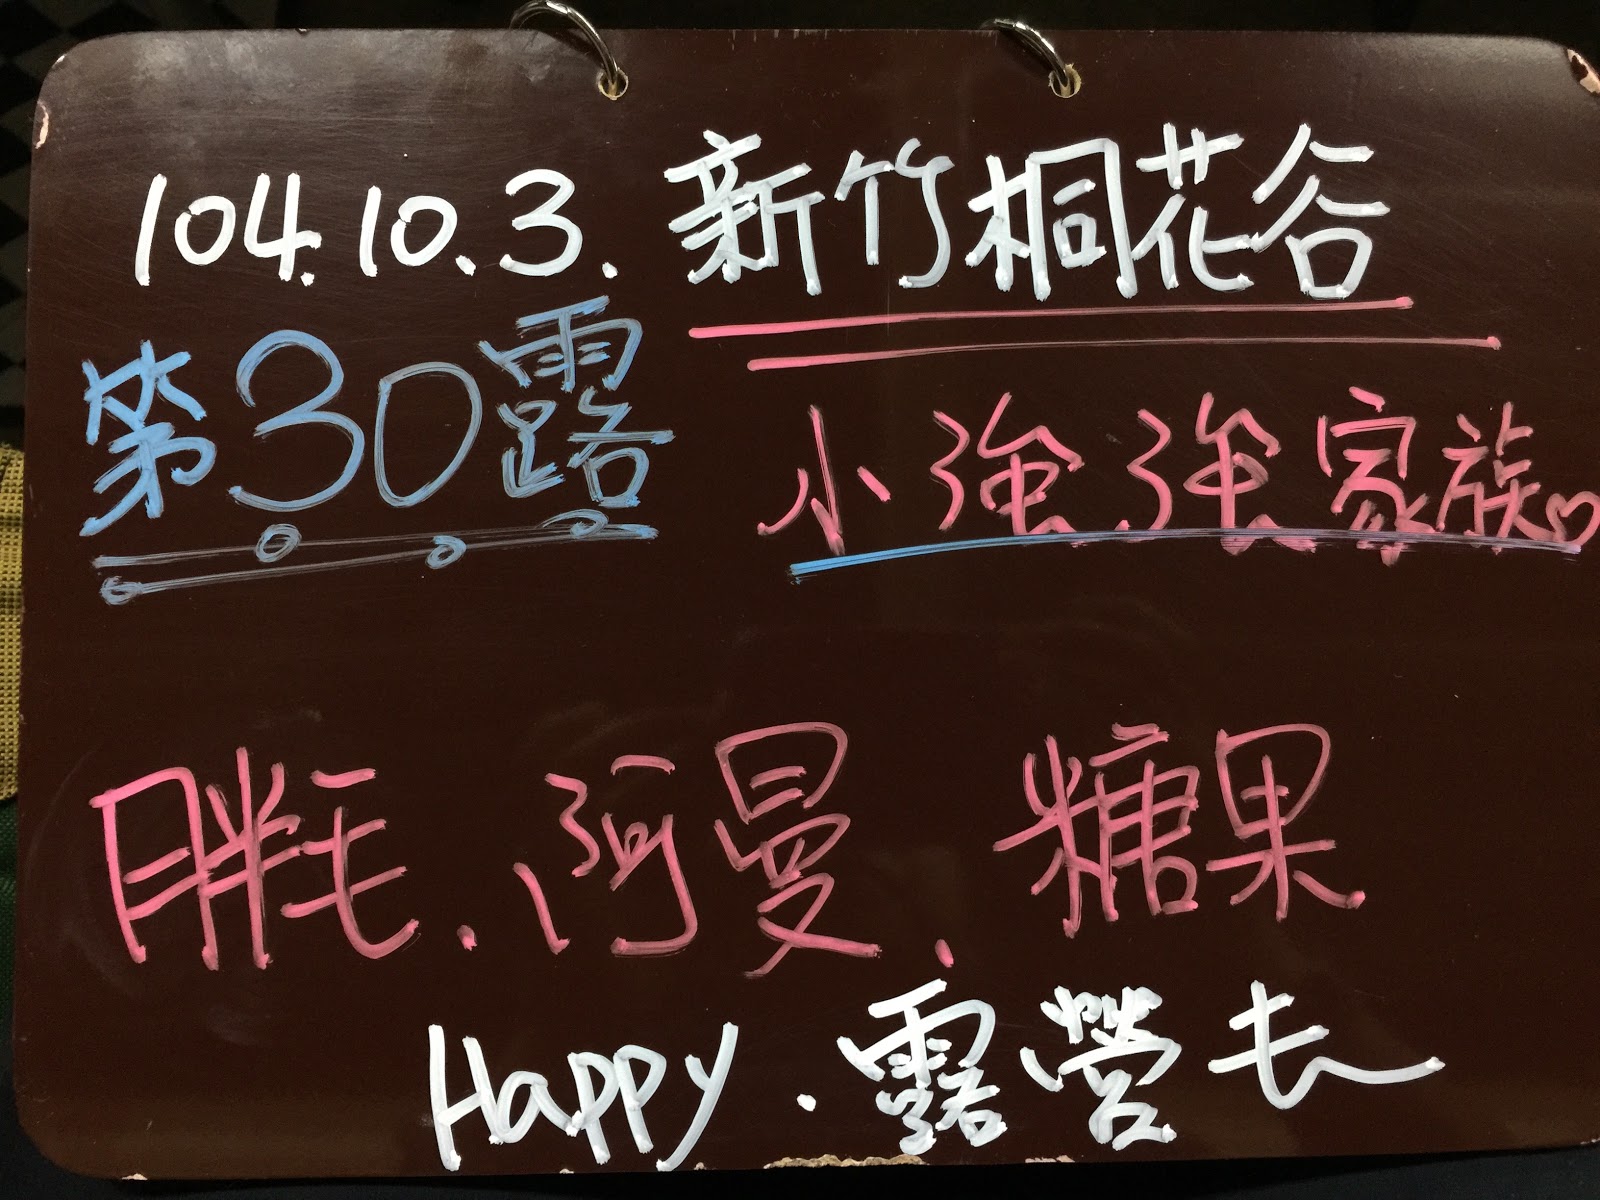 104.10.3.新竹桐花谷
第30露
小強強家族♡
胖毛、阿曼、糖果
Happy.露營去